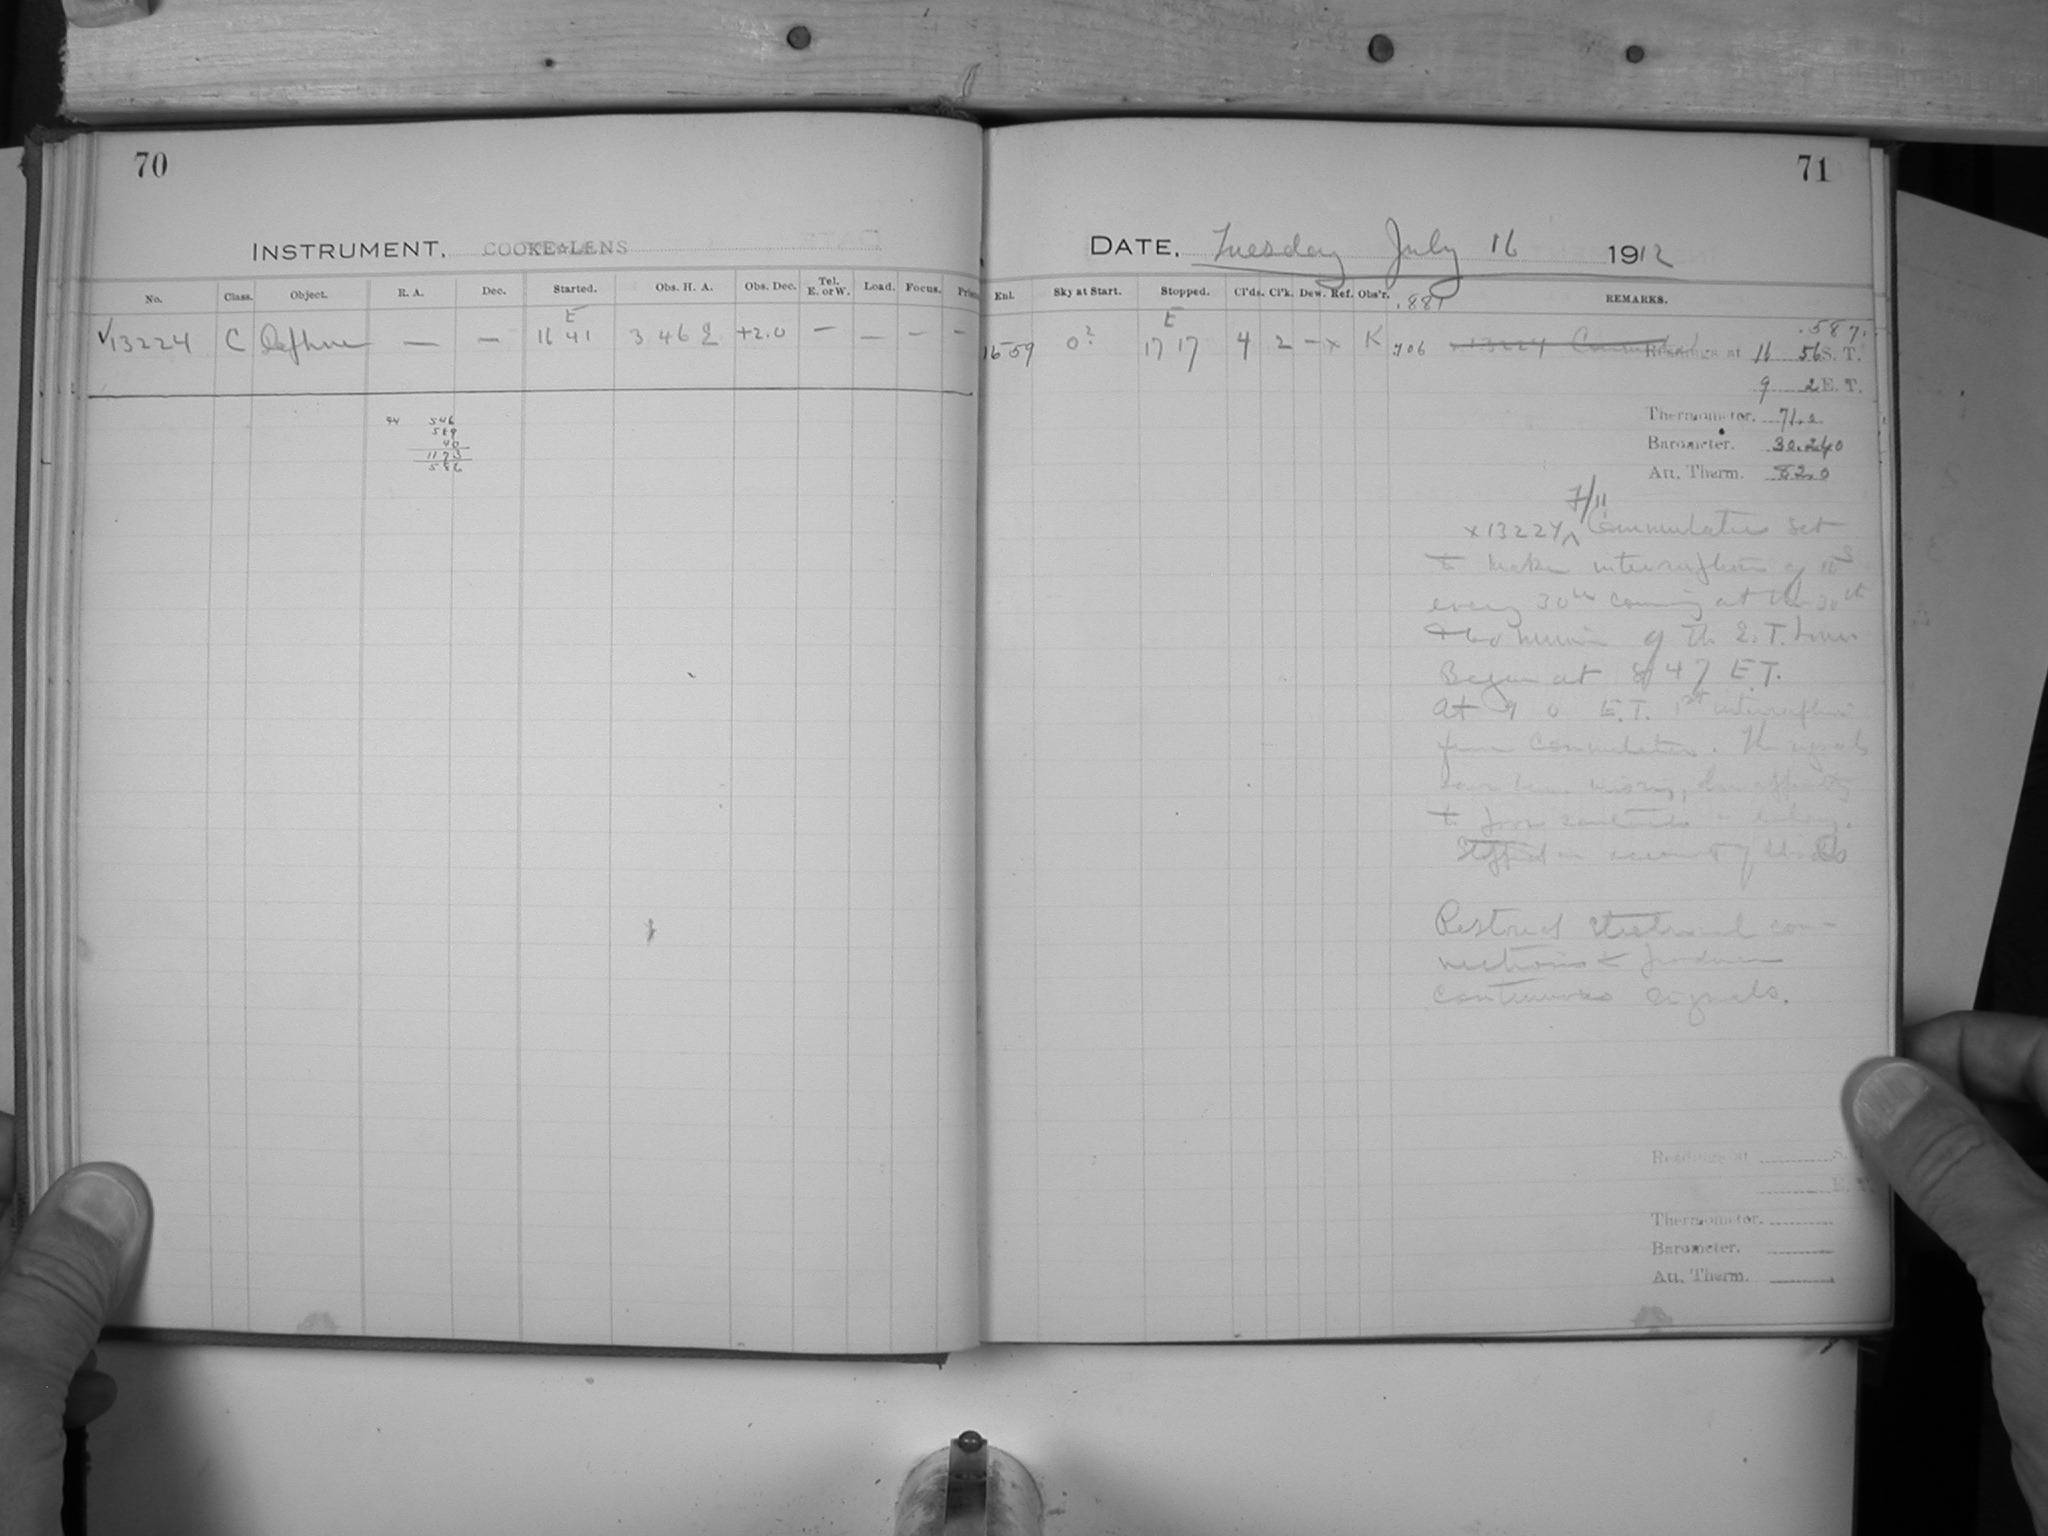 70
INSTRUMENT. COOKE LENS
No. Class. Object. R. A. Dec. Started. Obs. H. A. Obs. Dec. Tel. E. or W. Load. Focus.
E
√13224 C — — 16 41 3 46 E +2.0 — — — —
44 546
40
1173
586
71
DATE. Tuesday July 16 1912
Enl. Sky at Start. Stopped. Cl'ds. Cl'k. Dew. Ref. Obs'r. .881 REMARKS.
E .587.
16 59 0? 17 17 4 2 — x K .706 x13224
Readings at 16 56 S. T.
9 2 E. T.
Thermometer. 71.2
Barometer. 30.240
Att. Therm. 82.0
7/11
x13224 ^ Commutator set
to make interruption of
every 30 coming at the 30th
& 60 of the E. T. hour
Began at 8 47 E T.
At 9 0 E. T. 1st interruption
from Commutator. The signals
have been wrong,
to
Stopped on account of clouds
Restored electrical con-
nections & produce
continuous signals.
Readings at S. T.
E. T.
Thermometer.
Barometer.
Att. Therm.